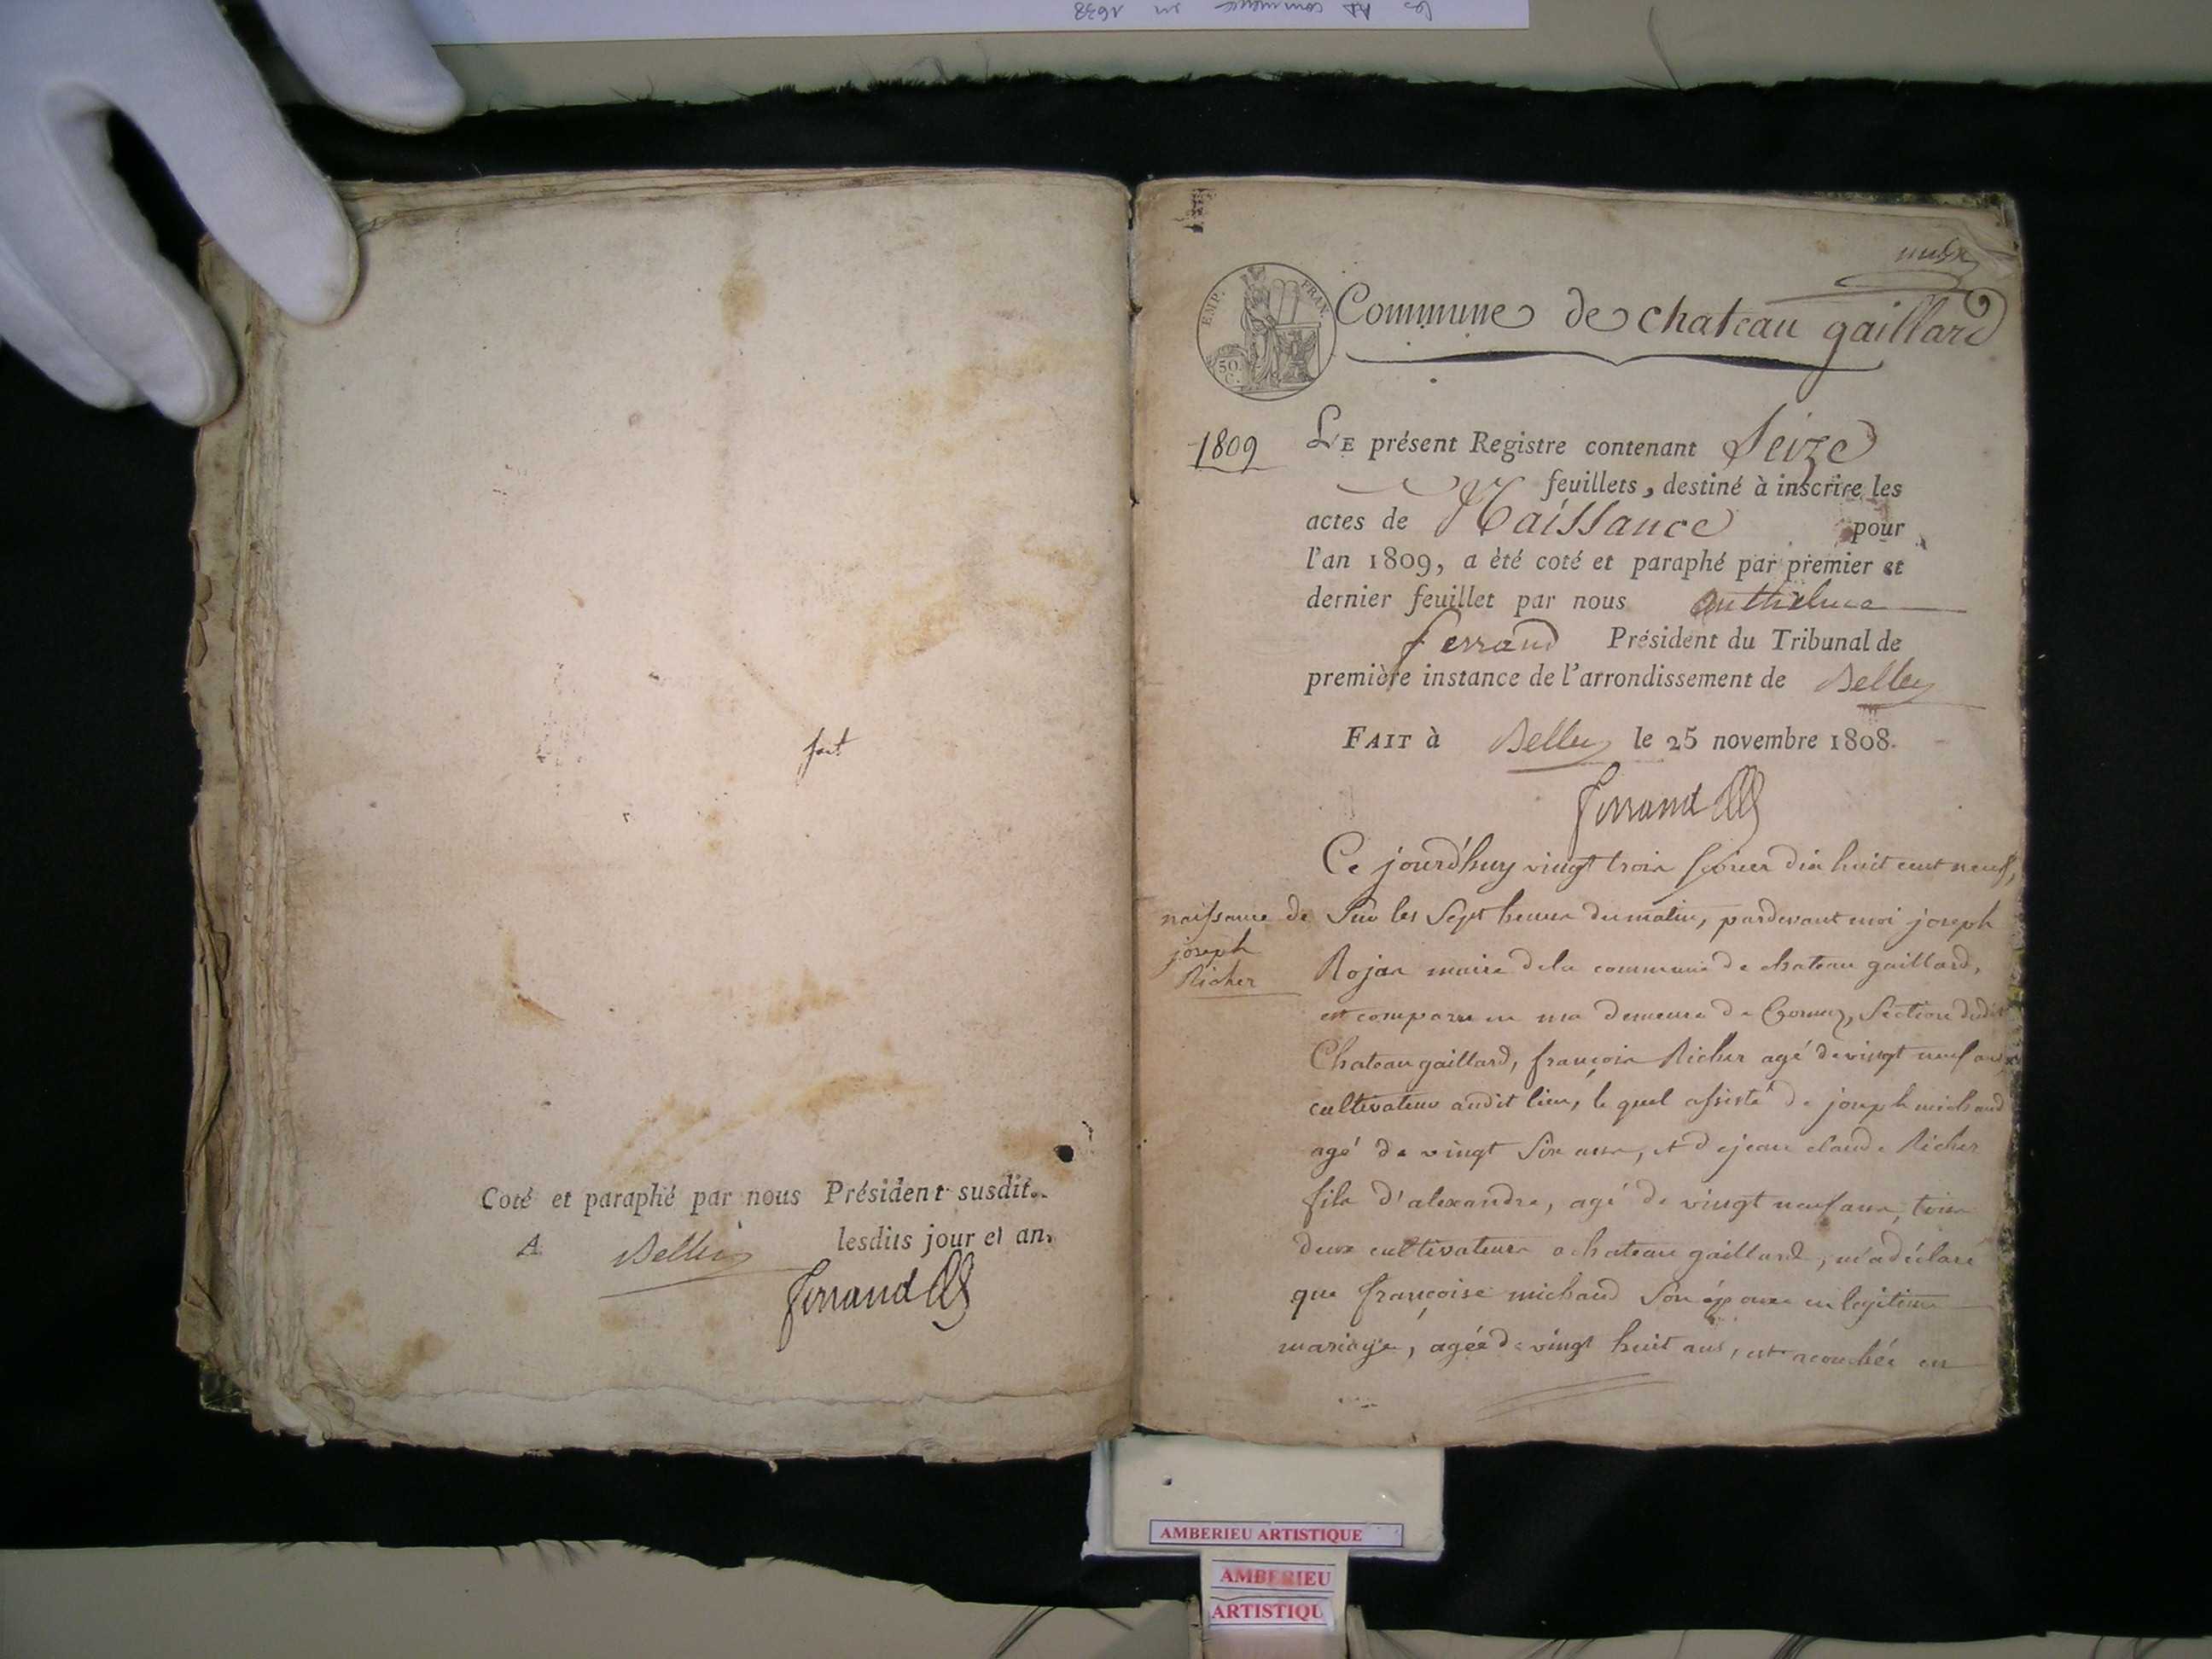 fait
Coté et paraphé par nous Président susdit.
A Belley lesdits jour et an.
Ferrand
EMP. FRAN.
50
C.
Commune de chateau gaillard
1809
LE présent Registre contenant Seize
feuillets, destiné à inscrire les
actes de Naissance pour
l'an 1809, a été coté et paraphé par premier et
dernier feuillet par nous anthelme
ferrand Président du Tribunal de
première instance de l'arrondissement de Belley
FAIT à Belley le 25 novembre 1808.
Ferrand
naissance de
joseph
Richer
Ce jourd'huy vingt trois fevrier dix huit cent neuf,
Sur les Sept heures du matin, pardevant moi joseph
Rojas maire dela commune de chateau gaillard,
est comparu en ma demeure de Section dudit
Chateau gaillard, françois Richer agé de vingt neuf ans
cultivateur audit lieu, le quel assisté de joseph michaud
agé de vingt Six ans, et de jean claude Richer
fils d'alexandre, agé de vingt neuf ans, tous
deux cultivateurs a chateau gaillard, m'a déclaré
que françoise michaud Son épouse en legitime
mariage, agée de vingt huit ans, est acouchée en
AMBERIEU ARTISTIQUE
AMBERIEU
ARTISTIQU